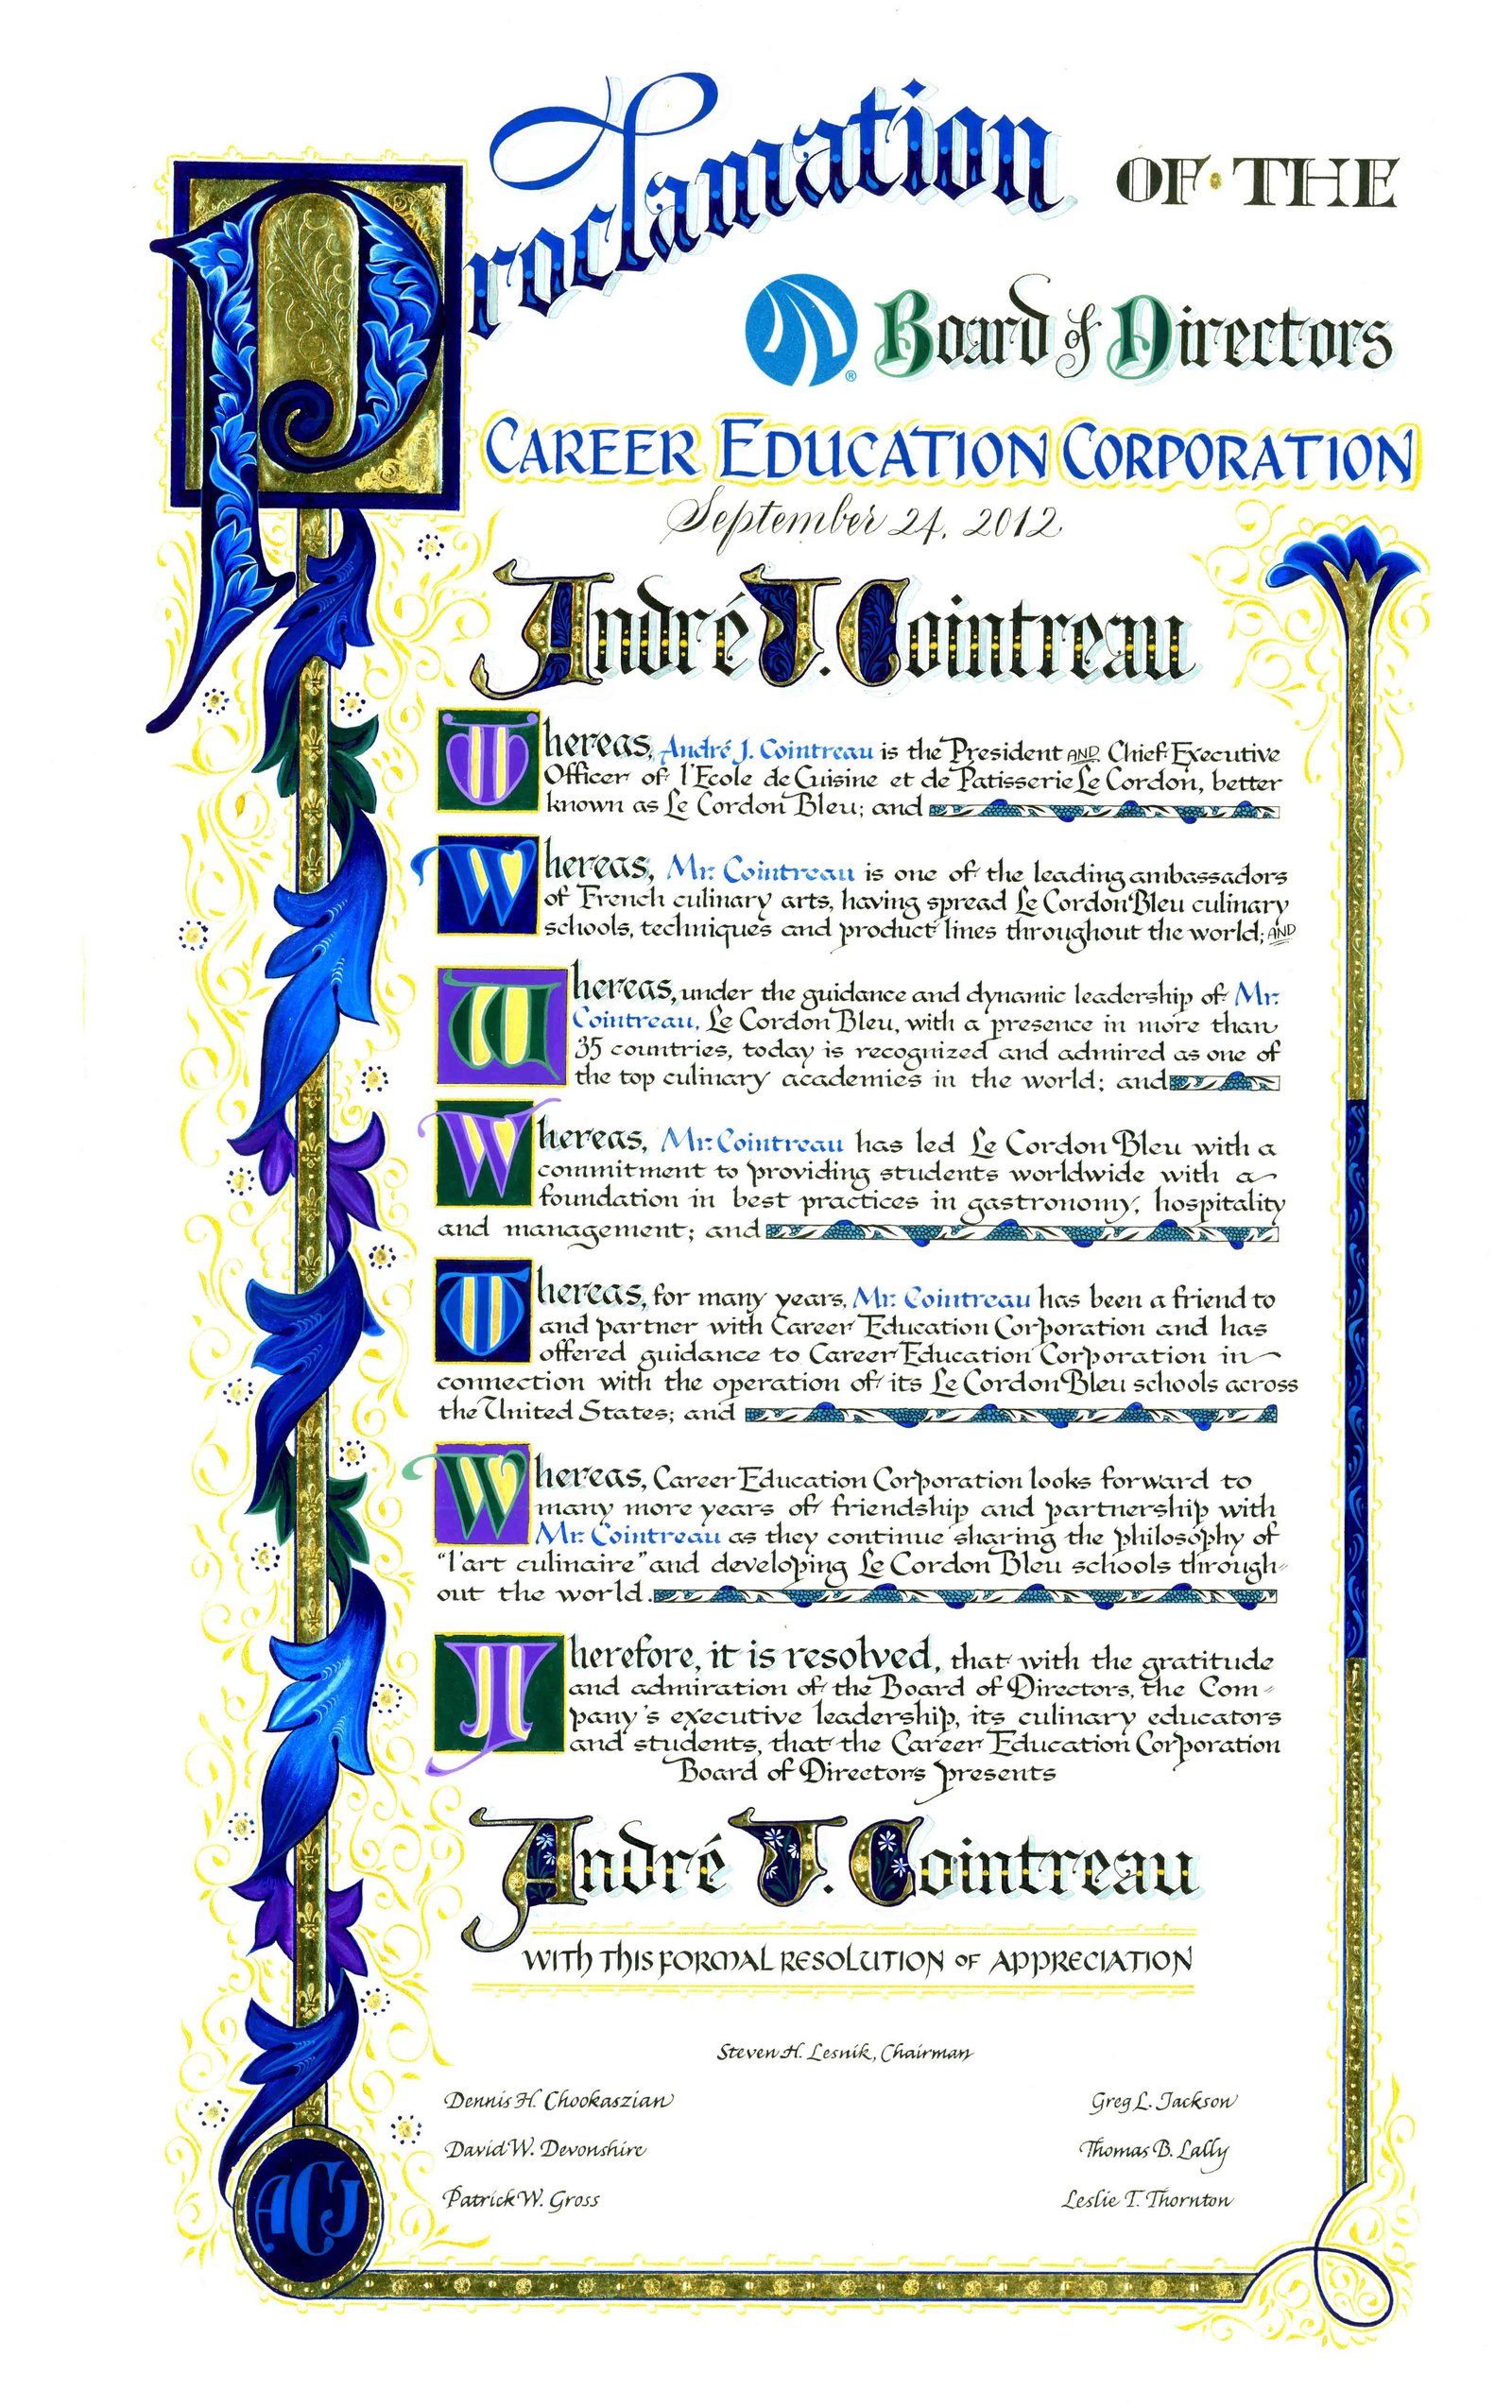 Proclamation OF·THE
Board of Directors
CAREER EDUCATION CORPORATION
September 24, 2012
André J. Cointreau
Whereas, André J. Cointreau is the President AND Chief Executive
Officer of l'Ecole de Cuisine et de Patisserie Le Cordon, better
known as Le Cordon Bleu; and
Whereas, Mr. Cointreau is one of the leading ambassadors
of French culinary arts, having spread Le Cordon Bleu culinary
schools, techniques and product lines throughout the world; AND
Whereas, under the guidance and dynamic leadership of Mr.
Cointreau, Le Cordon Bleu, with a presence in more than
35 countries, today is recognized and admired as one of
the top culinary academies in the world; and
Whereas, Mr. Cointreau has led Le Cordon Bleu with a
commitment to providing students worldwide with a
foundation in best practices in gastronomy, hospitality
and management; and
Whereas, for many years, Mr. Cointreau has been a friend to
and partner with Career Education Corporation and has
offered guidance to Career Education Corporation in
connection with the operation of its Le Cordon Bleu schools across
the United States; and
Whereas, Career Education Corporation looks forward to
many more years of friendship and partnership with
Mr. Cointreau as they continue sharing the philosophy of
"l'art culinaire" and developing Le Cordon Bleu schools through-
out the world.
Therefore, it is resolved, that with the gratitude
and admiration of the Board of Directors, the Com-
pany's executive leadership, its culinary educators
and students, that the Career Education Corporation
Board of Directors presents
André J. Cointreau
WITH THIS FORMAL RESOLUTION OF APPRECIATION
Steven H. Lesnik, Chairman
Dennis H. Chookaszian Greg L. Jackson
David W. Devonshire Thomas B. Lally
Patrick W. Gross Leslie T. Thornton
ACJ